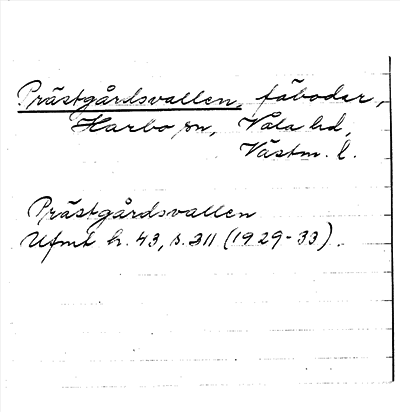 Prästgårdsvallen, fäbodar,
Harbo sn, Våla hd,
Västm. l.
Prästgårdsvallen
Ufmt h. 43, s. 311 (1929-33).